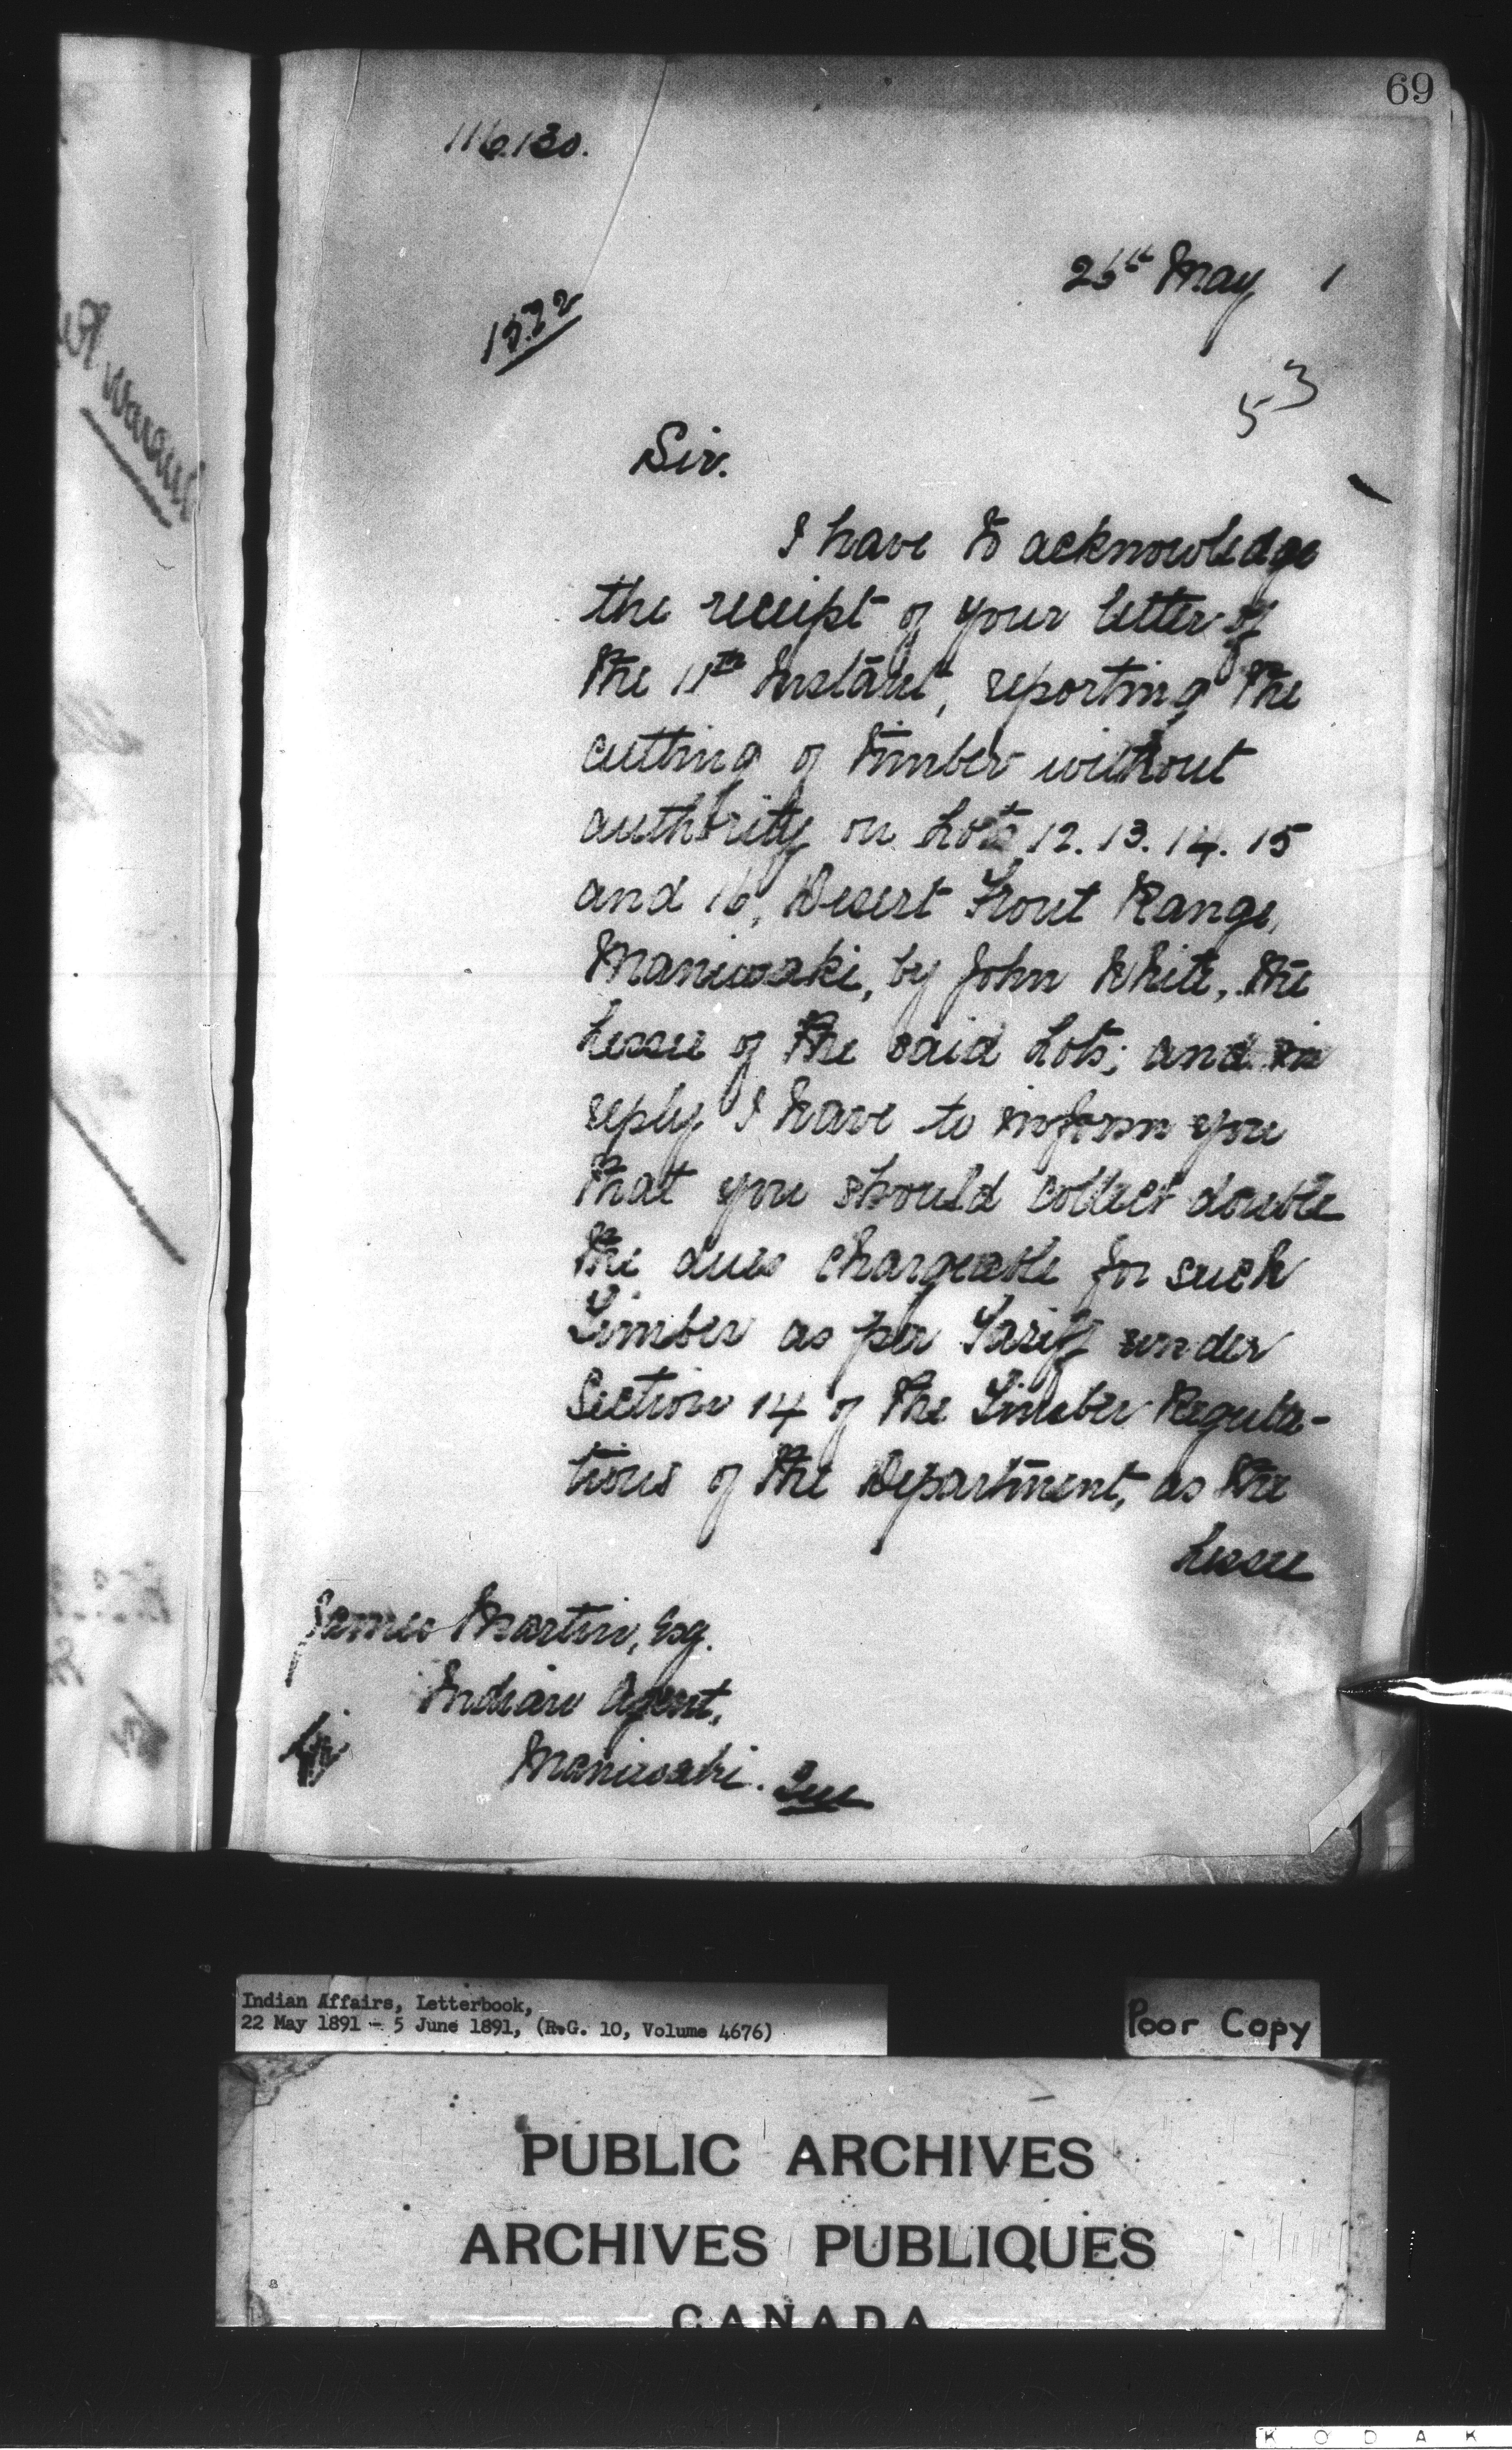 69
116.130.
25th May 1
1572
53
Sir.
I have to acknowledge
the receipt of your letter of
the 11th Instant, reporting the
cutting of timber without
authority on Lots 12. 13. 14. 15
and 16, Desert Front Range,
Maniwaki, by John White, the
Lessee of the said Lots; and in
reply I have to inform you
that you should collect double
the dues chargeable for such
Timber as per Tariff under
Section 14 of the Timber Regula-
tions of the Department, as the
Lessee
James Martin, Esq.
Indian Agent,
Maniwaki. Que
Indian Affairs, Letterbook,
22 May 1891 - 5 June 1891, (R.G. 10, Volume 4676)
Poor Copy
PUBLIC ARCHIVES
ARCHIVES PUBLIQUES
CANADA
KODAK